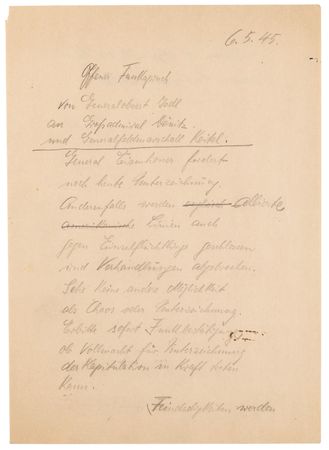 6.5.45.
Offener Funkspruch
von Generaloberst Jodl
an Großadmiral Dönitz
und Generalfeldmarschall Keitel.
General Eisenhower fordert
noch heute Unterzeichnung.
Andernfalls werden Alliierte
Linien auch
gegen Einzelflüchtlinge geschlossen
und Verhandlungen abgebrochen.
Sehe keine andere Möglichkeit
als Chaos oder Unterzeichnung.
Erbitte sofort Funkbestätigung
ob Vollmacht für Unterzeichnung
der Kapitulation in Kraft treten
kann.
Feindseligkeiten werden